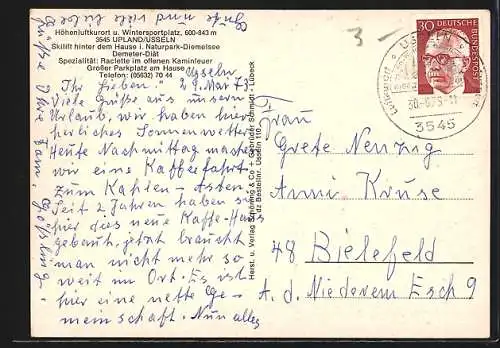 Höhenluftkurort u. Wintersportplatz, 600-843 m
3545 UPLAND/USSELN
Skilift hinter dem Hause i. Naturpark-Diemelsee
Demeter-Diät
Spezialität: Raclette im offenen Kaminfeuer
Großer Parkplatz am Hause
Telefon: (05632) 70 44
Usseln
Ihr Lieben! 29. Mai 73.
Viele Grüße aus unserm
Urlaub, wir haben hier
herliches Sonnenwetter
Heute Nachmittag machen
wir eine Kaffeefahrt
zum Kahlen - Asten
Seit 2 Jahren haben sie
hier dies neue Kaffe-Haus
gebaut, jetzt braucht
man nicht mehr so
weit im Ort. Es ist
hier eine nette Ge-
meinschaft. Nun alles
Gute und viele liebe
Grüße Ihre Fam.
Herst. u. Verlag Schöning & Co + Gebrüder Schmidt - Lübeck
Bestellnr. Usseln 110
3
30
DEUTSCHE
BUNDESPOST
3545
Frau
Grete
Anni Kruse
48 Bielefeld
A. d. Niederern Esch 9